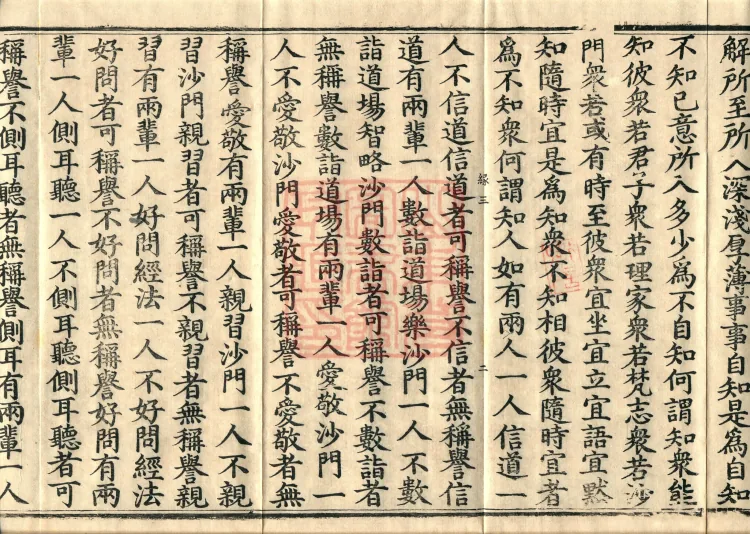 解所至所入深淺厚薄事事自知是為自知
不知已意所入多少為不自知何謂知衆能
知彼衆若君子衆若理家衆若梵志衆若沙
門衆若或有時至彼衆宜坐宜立宜語宜默
知隨時宜是為知衆不知相彼衆隨時宜者
為不知衆何謂知人如有兩人一人信道一
縁三
二
人不信道信道者可稱譽不信者無稱譽信
道有兩輩一人數詣道場樂沙門一人不數
詣道場智略沙門數詣者可稱譽不數詣者
無稱譽數詣道場有兩輩一人愛敬沙門一
人不愛敬沙門愛敬者可稱譽不愛敬者無
稱譽愛敬有兩輩一人親習沙門一人不親
習沙門親習者可稱譽不親習者無稱譽親
習有兩輩一人好問經法一人不好問經法
好問者可稱譽不好問者無稱譽好問有兩
輩一人側耳聽一人不側耳聽側耳聽者可
稱譽不側耳聽者無稱譽側耳有兩輩一人